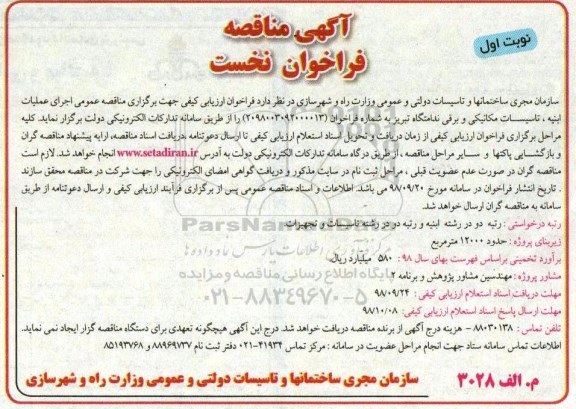 آگهی مناقصه
فراخوان نخست
نوبت اول
سازمان مجری ساختمانها و تاسیسات دولتی و عمومی وزارت راه و شهرسازی در نظر دارد فراخوان ارزیابی کیفی جهت برگزاری مناقصه عمومی اجرای عملیات
ابنیه ، تاسیسات مکانیکی و برقی ندامتگاه تبریز به شماره فراخوان (۲۰۹۸۰۰۳۰۹۲۰۰۰۰۱۳) را از طریق سامانه تدارکات الکترونیکی دولت برگزار نماید. کلیه
مراحل برگزاری فراخوان ارزیابی کیفی از زمان دریافت و تحویل اسناد استعلام ارزیابی کیفی تا ارسال دعوتنامه ،دریافت اسناد مناقصه، ارایه پیشنهاد مناقصه گران
و بازگشایی پاکتها و سایر مراحل مناقصه ، از طریق درگاه سامانه تدارکات الکترونیکی دولت به آدرس www.setadiran.ir انجام خواهد شد. لازم است
مناقصه گران در صورت عدم عضویت قبلی ، مراحل ثبت نام در سایت مذکور و دریافت گواهی امضای الکترونیکی را جهت شرکت در مناقصه محقق سازند
. تاریخ انتشار فراخوان در سامانه مورخ ۹۸/۰۹/۲۰ می باشد. اطلاعات و اسناد مناقصه عمومی پس از برگزاری فرآیند ارزیابی کیفی و ارسال دعوتنامه از طریق
سامانه به مناقصه گران ارسال خواهد شد.
رتبه درخواستی : رتبه دو در رشته ابنیه و رتبه دو در رشته تاسیسات و تجهیزات
زیربنای پروژه : حدود ۱۲۰۰۰ مترمربع
برآورد تخمینی براساس فهرست بهای سال ۹۸ : ۵۸۰ میلیارد ریال
مشاور پروژه : مهندسین مشاور پژوهش و برنامه ۲
مهلت دریافت اسناد استعلام ارزیابی کیفی : ۹۸/۰۹/۲۴
مهلت ارسال پاسخ اسناد استعلام ارزیابی کیفی: ۹۸/۱۰/۰۸
تلفن تماس : ۸۸۰۳۰۱۳۸ - هزینه درج آگهی از برنده مناقصه دریافت خواهد شد. درج این آگهی هیچگونه تعهدی برای دستگاه مناقصه گزار ایجاد نمی نماید.
اطلاعات تماس سامانه ستاد جهت انجام مراحل عضویت در سامانه : مرکز تماس ۴۱۹۳۴-۰۲۱ دفتر ثبت نام ۸۸۹۶۹۷۳۷ و ۸۵۱۹۳۷۶۸
م. الف ۳۰۲۸ سازمان مجری ساختمانها و تاسیسات دولتی و عمومی وزارت راه و شهرسازی
ParsNamadData
پایگاه اطلاع رسانی مناقصه و مزایده
۰۲۱-۸۸۳۴۹۶۷۰-۵